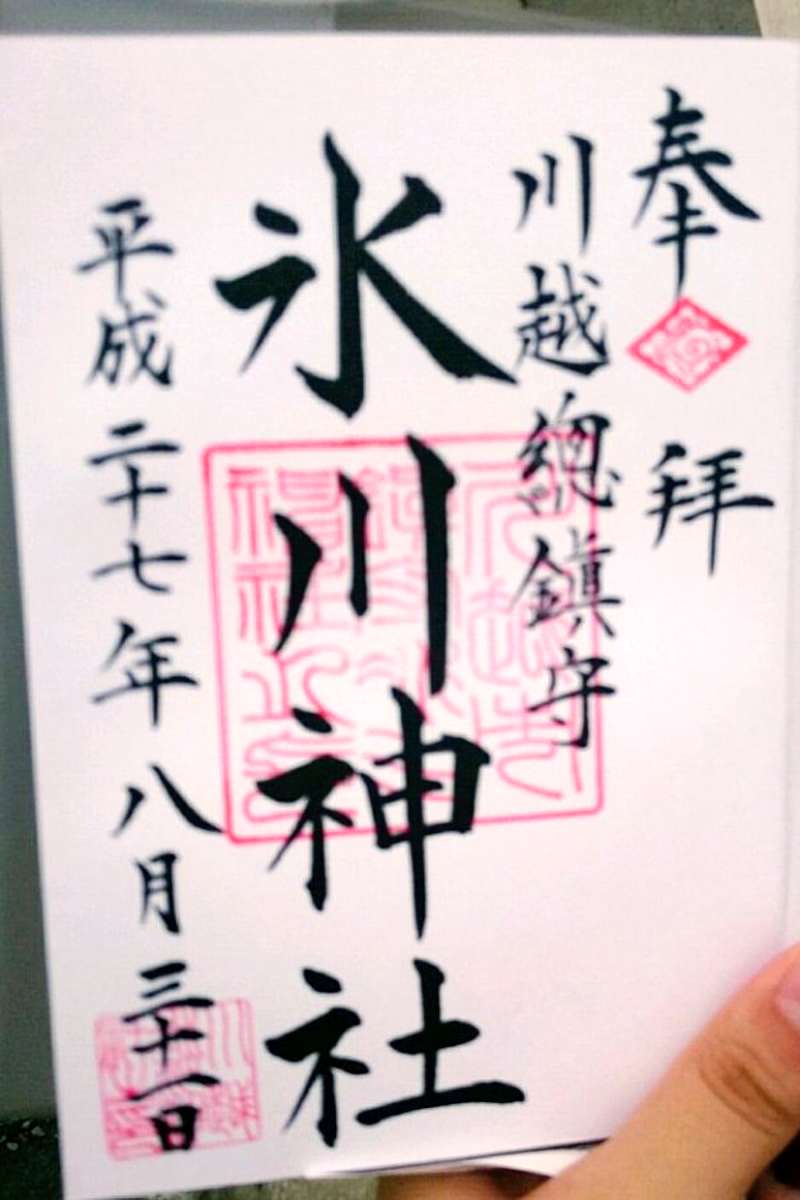 奉拝
川越總鎮守
氷川神社
平成二十七年八月三十一日